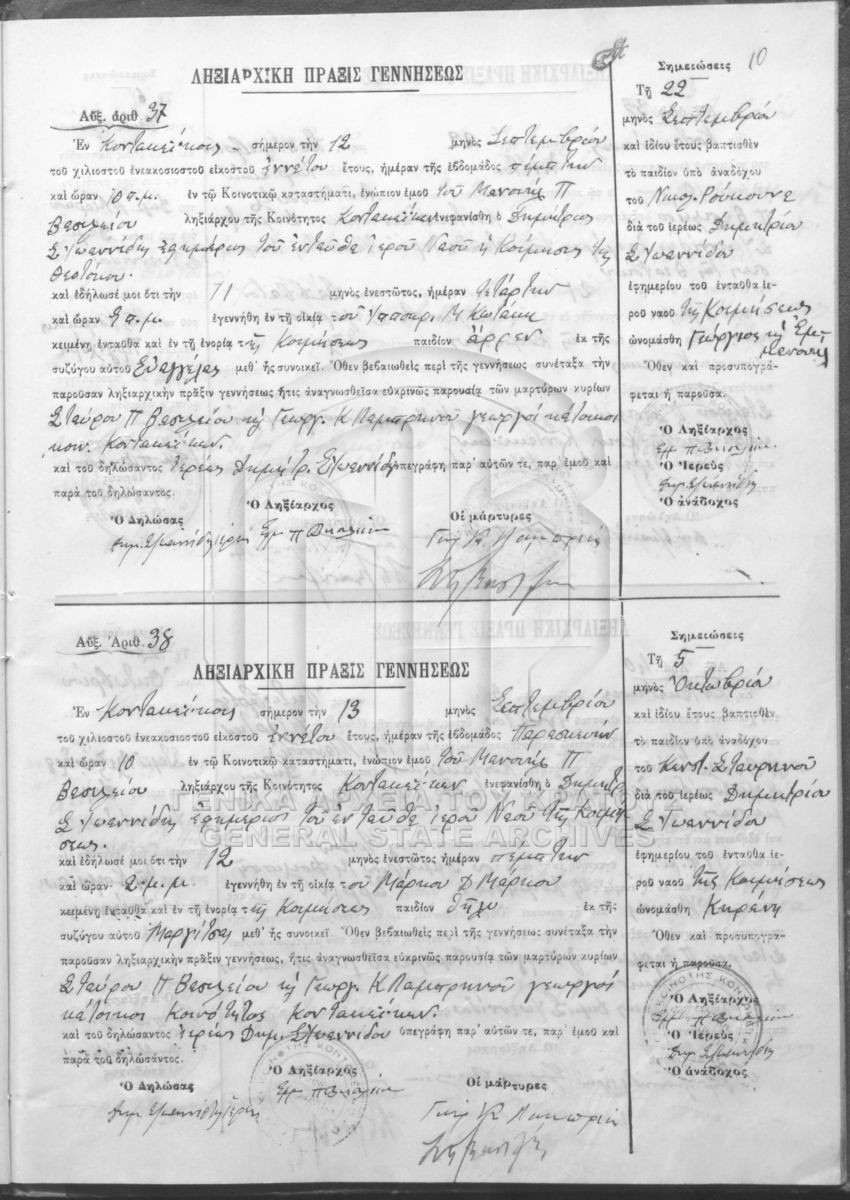 10
ΛΗΞΙΑΡΧΙΚΗ ΠΡΑΞΙΣ ΓΕΝΝΗΣΕΩΣ
Αὔξ. ἀριθ. 37
Ἐν Κοντακεΐκοις σήμερον τὴν 12 μηνὸς Σεπτεμβρίου
τοῦ χιλιοστοῦ ἐνεακοσιοστοῦ εἰκοστοῦ ἐννάτου ἔτους, ἡμέραν τῆς ἑβδομάδος πέμπτην
καὶ ὥραν 10 π.μ. ἐν τῷ Κοινοτικῷ καταστήματι, ἐνώπιον ἐμοῦ τοῦ Μανουὴλ Π
Βασιλείου ληξιάρχου τῆς Κοινότητος Κοντακεΐκων ἐνεφανίσθη ὁ Δημήτριος
Σ Ἰωαννίδης ἐφημέριος τοῦ ἐνταῦθα ἱεροῦ Ναοῦ ἡ Κοίμησις τῆς
Θεοτόκου.
καὶ ἐδήλωσέ μοι ὅτι τὴν 11 μηνὸς ἐνεστῶτος, ἡμέραν τετάρτην
καὶ ὥραν 9 π.μ. ἐγεννήθη ἐν τῇ οἰκίᾳ τοῦ Μ
κειμένῃ ἐνταῦθα καὶ ἐν τῇ ἐνορίᾳ τῆς Κοιμήσεως παιδίον ἄρρεν ἐκ τῆς
συζύγου αὐτοῦ Εὐαγγελίας μεθ᾽ ἧς συνοικεῖ. Ὅθεν βεβαιωθεὶς περὶ τῆς γεννήσεως συνέταξα τὴν
παροῦσαν ληξιαρχικὴν πρᾶξιν γεννήσεως ἥτις ἀναγνωσθεῖσα εὐκρινῶς παρουσίᾳ τῶν μαρτύρων κυρίων
Σταύρου Π Βασιλείου κ Γεωργ. Κ Λαμπρινοῦ γεωργοί κάτοικοι
κοιν. Κοντακεΐκων.
καὶ τοῦ δηλώσαντος Ἱερέως Δημητρ. Σ Ἰωαννίδου ὑπεγράφη παρ᾽ αὐτῶν τε, παρ᾽ ἐμοῦ καὶ
παρὰ τοῦ δηλώσαντος.
Ὁ Δηλώσας
Ὁ Ληξίαρχος
Οἱ μάρτυρες
Σημειώσεις
Τῇ 22
μηνὸς Σεπτεμβρίου
καὶ ἰδίου ἔτους βαπτισθὲν
τὸ παιδίον ὑπὸ ἀναδόχου
τοῦ Νικολ.
διὰ τοῦ ἱερέως Δημητρίου
Σ Ἰωαννίδου
ἐφημερίου τοῦ ἐνταῦθα ἱε-
ροῦ ναοῦ τῆς Κοιμήσεως
ὠνομάσθη Γεώργιος κ Ἐμ-
μανουὴλ
Ὅθεν καὶ προσυπογρά-
φεται ἡ παροῦσα.
Ὁ Ληξίαρχος
Ὁ Ἱερεὺς
Ὁ ἀνάδοχος
Αὔξ. Ἀριθ. 38
ΛΗΞΙΑΡΧΙΚΗ ΠΡΑΞΙΣ ΓΕΝΝΗΣΕΩΣ
Ἐν Κοντακεΐκοις σήμερον τὴν 13 μηνὸς Σεπτεμβρίου
τοῦ χιλιοστοῦ ἐνεακοσιοστοῦ εἰκοστοῦ ἐννάτου ἔτους, ἡμέραν τῆς ἑβδομάδος Παρασκευὴν
καὶ ὥραν 10 ἐν τῷ Κοινοτικῷ καταστήματι, ἐνώπιον ἐμοῦ τοῦ Μανουὴλ Π
Βασιλείου ληξιάρχου τῆς Κοινότητος Κοντακεΐκων ἐνεφανίσθη ὁ Δημήτρ.
Σ Ἰωαννίδης ἐφημέριος τοῦ ἐνταῦθα ἱεροῦ Ναοῦ τῆς Κοιμή-
σεως.
καὶ ἐδήλωσέ μοι ὅτι τὴν 12 μηνὸς ἐνεστῶτος ἡμέραν πέμπτην
καὶ ὥραν 2 μ.μ. ἐγεννήθη ἐν τῇ οἰκίᾳ τοῦ Μάρκου Δ Μάρκου
κειμένῃ ἐνταῦθα καὶ ἐν τῇ ἐνορίᾳ τῆς Κοιμήσεως παιδίον θῆλυ ἐκ τῆς
συζύγου αὐτοῦ Μαργίτσας μεθ᾽ ἧς συνοικεῖ. Ὅθεν βεβαιωθεὶς περὶ τῆς γεννήσεως συνέταξα τὴν
παροῦσαν ληξιαρχικὴν πρᾶξιν γεννήσεως, ἥτις ἀναγνωσθεῖσα εὐκρινῶς παρουσίᾳ τῶν μαρτύρων κυρίων
Σταύρου Π Βασιλείου κ Γεωργ. Κ Λαμπρινοῦ γεωργοί
κάτοικοι Κοινότητος Κοντακεΐκων.
καὶ τοῦ δηλώσαντος Ἱερέως Δημ. Σ Ἰωαννίδου ὑπεγράφη παρ᾽ αὐτῶν τε, παρ᾽ ἐμοῦ καὶ
παρὰ τοῦ δηλώσαντος.
Ὁ Δηλώσας
Ὁ Ληξίαρχος
Οἱ μάρτυρες
Σημειώσεις
Τῇ 5
μηνὸς Ὀκτωβρίου
καὶ ἰδίου ἔτους βαπτισθὲν
τὸ παιδίον ὑπὸ ἀναδόχου
τοῦ Κωνστ. Σταυρινοῦ
διὰ τοῦ ἱερέως Δημητρίου
Σ Ἰωαννίδου
ἐφημερίου τοῦ ἐνταῦθα ἱε-
ροῦ ναοῦ τῆς Κοιμήσεως
ὠνομάσθη Κυράνη
Ὅθεν καὶ προσυπογρά-
φεται ἡ παροῦσα.
Ὁ Ληξίαρχος
Ὁ Ἱερεὺς
Ὁ ἀνάδοχος
ΓΕΝΙΚΑ ΑΡΧΕΙΑ ΤΟΥ ΚΡΑΤΟΥΣ
GENERAL STATE ARCHIVES